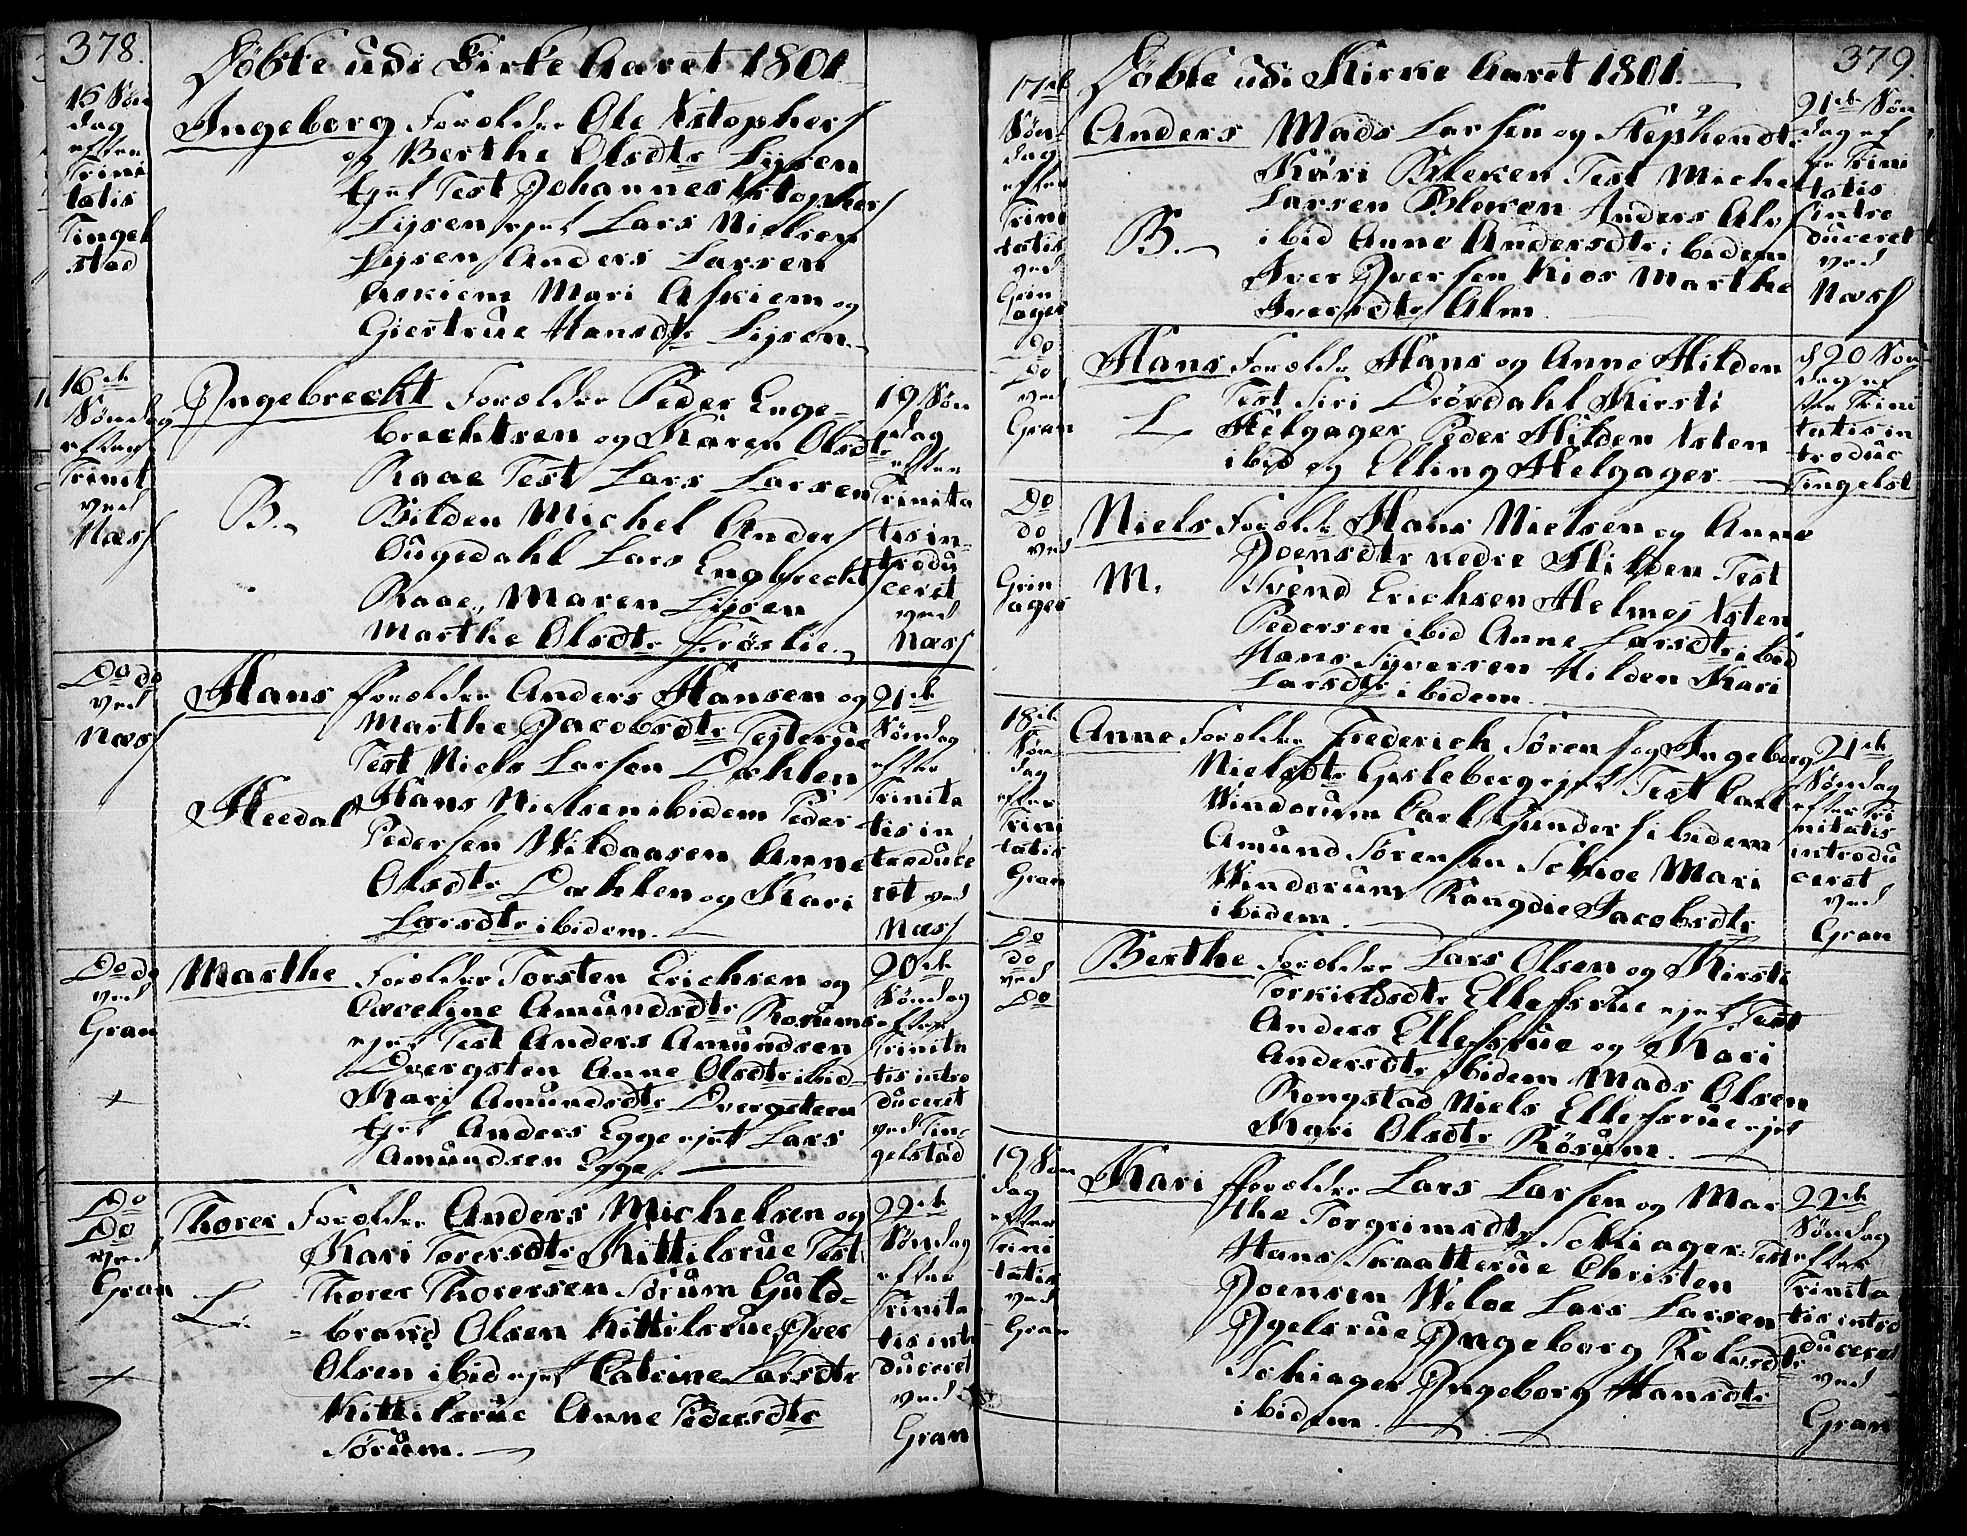 378.
Döbte udi Kirke Aaret 1801
15 Søn
dag
efter
Trini
tatis
Tingel
stad
Ingeborg Forældre Ole Xstophers
og Berthe Olsdtr Lysen
ejet Test Johannes Xstophers
Lysen ejet Lars Nielsen
Lysen Anders Larsen
Askiem Mari Askiem og
Giertrue Hansdtr Lysen
16de
Søndag
efter
Trinit
ved
Næss
Ingebrecht Forældre Peder Enge-
brechtsen og Karen Olsdtr
Raae Test Lars Larsen
B. Bilden Michel Anders
Ougedahl Lars Engbrecht
Raae, Maren Lysen
Marthe Olsdtr Frøslie
19 Søn
dag
efter
Trinita
tis in-
trodu
ceret
ved
Næss
Do do
ved
Næss
Hans Forældre Anders Hansen og
Marthe Jacobsdtr
Test Niels Larsen Dæhlen
Heedal Hans Nielsen ibidem Peder
Pedersen Wildaasen Anne
Olsdtr Dæhlen og Kari
Larsdtr ibidem.
21de
Søndag
efter
Trinita
tis in
troduce
ret ved
Næss
Do do
ved
Gran
+
Marthe Forældre Torsten Erichsen og
Axceline Amundsdtr Rosums
ejet Test Anders Amundsen
Dvergsten Anne Olsdtr ibid
Mari Amundsdtr Dvergsteen
ejet Anders Egge ejet Lars
Amundsen Egge
20de
Søndag
efter
Trinita
tis intro
duceret
ved Tin-
gelstad
Do
Do
ved
Gran
+
Thorer Forældre Anders Michelsen og
Kari Torersdtr Kittilsrue Test
L. Thorer Thorersen Sørum Guld-
brand Olsen Kittilsrue Iver
Olsen ibid ejet Catrine Larsdtr
Kittilsrue Anne Pedersdtr
Sørum.
22de
Søndag
efter
Trinita
tis intr
duceret
ved
Gran
379.
Döbte udi Kirke Aaret 1801.
17de
Søn-
dag
efter
Trini
tatis
ved
Grin
ager
Anders Mads Larsen og Stephendtr
Kari Bleken Test Michel
Larsen Bleken Anders Alv
B. ibid Anne Andersdtr ibidem
Iver Iversen Kios Marthe
Iversdtr Alm
21de Søn
dag ef
ter Trini
tatis
intro
duceret
ved
Næss
Do
Do
ved
Gran
Hans Forældre Hans og Anne Hilden
Test Siri Drövdahl Kirsti
L Helgager Peder Hilden Xsten
ibid og Elling Helgager
d 20 Søn
dag ef
ter Trini
tatis in
troduc
Tingelst
Do
do
ved
Grin
ager
Niels Forældre Hans Nielsen og Anne
Joensdtr nedre Hilden Test
M. Svend Erichsen Helmej Xsten
Pedersen ibid Anne Larsdtr ibid
Hans Syversen Hilden Kari
Larsdtr ibidem
18de
Søn-
dag
efter
Trini
tatis
Gran
Anne Forældre Frederich Sören og Ingeborg
Nielsdtr Gisleberg ejet Test Carl
Windorum Carl Gunders ibidem
Amund Sørensen Schioe Mari
Windorum Rangdie Jacobsdtr
ibidem
21de
Søndag
efter Tri
nitatis
introdu
ceret
ved
Gran
Do
do
ved
Do
Berthe Forældre Lars Olsen og Kirsti
Torkieldsdtr Ellefsrue ejet Test
Anders Ellefsrue og Mari
Andersdtr ibidem Mads Olsen
Rongstad Niels Ellefsrue ejet
Mari Olsdtr Rösum.
19 Søn
dag
efter
Trini
tatis
ved
Gran
Kari Forældre Lars Larsen og Mar
the Torgrimsdtr Schiager Test
Hans Skaatterue Christen
Joensen Weloe Lars Larsen
Igelsrue Ingeborg Rolvsdtr
Schiager Ingeborg Hansdtr
ibidem.
22de
Søndag
efter
Trinita
tis intro
duceret
ved
Gran